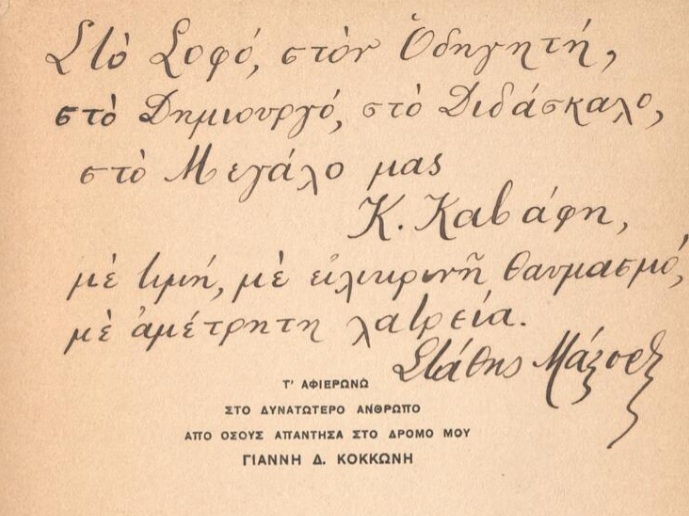 Στὸ Σοφό, στὸν Ὁδηγητή,
στὸ Δημιουργό, στὸ Διδάσκαλο,
στὸ Μεγάλο μας
Κ. Καβάφη,
μὲ τιμή, μὲ εἰλικρινῆ θαυμασμό,
μὲ ἀμέτρητη λατρεία.
Στάθης
Τ' ΑΦΙΕΡΩΝΩ
ΣΤΟ ΔΥΝΑΤΩΤΕΡΟ ΑΝΘΡΩΠΟ
ΑΠΟ ΟΣΟΥΣ ΑΠΑΝΤΗΣΑ ΣΤΟ ΔΡΟΜΟ ΜΟΥ
ΓΙΑΝΝΗ Δ. ΚΟΚΚΩΝΗ